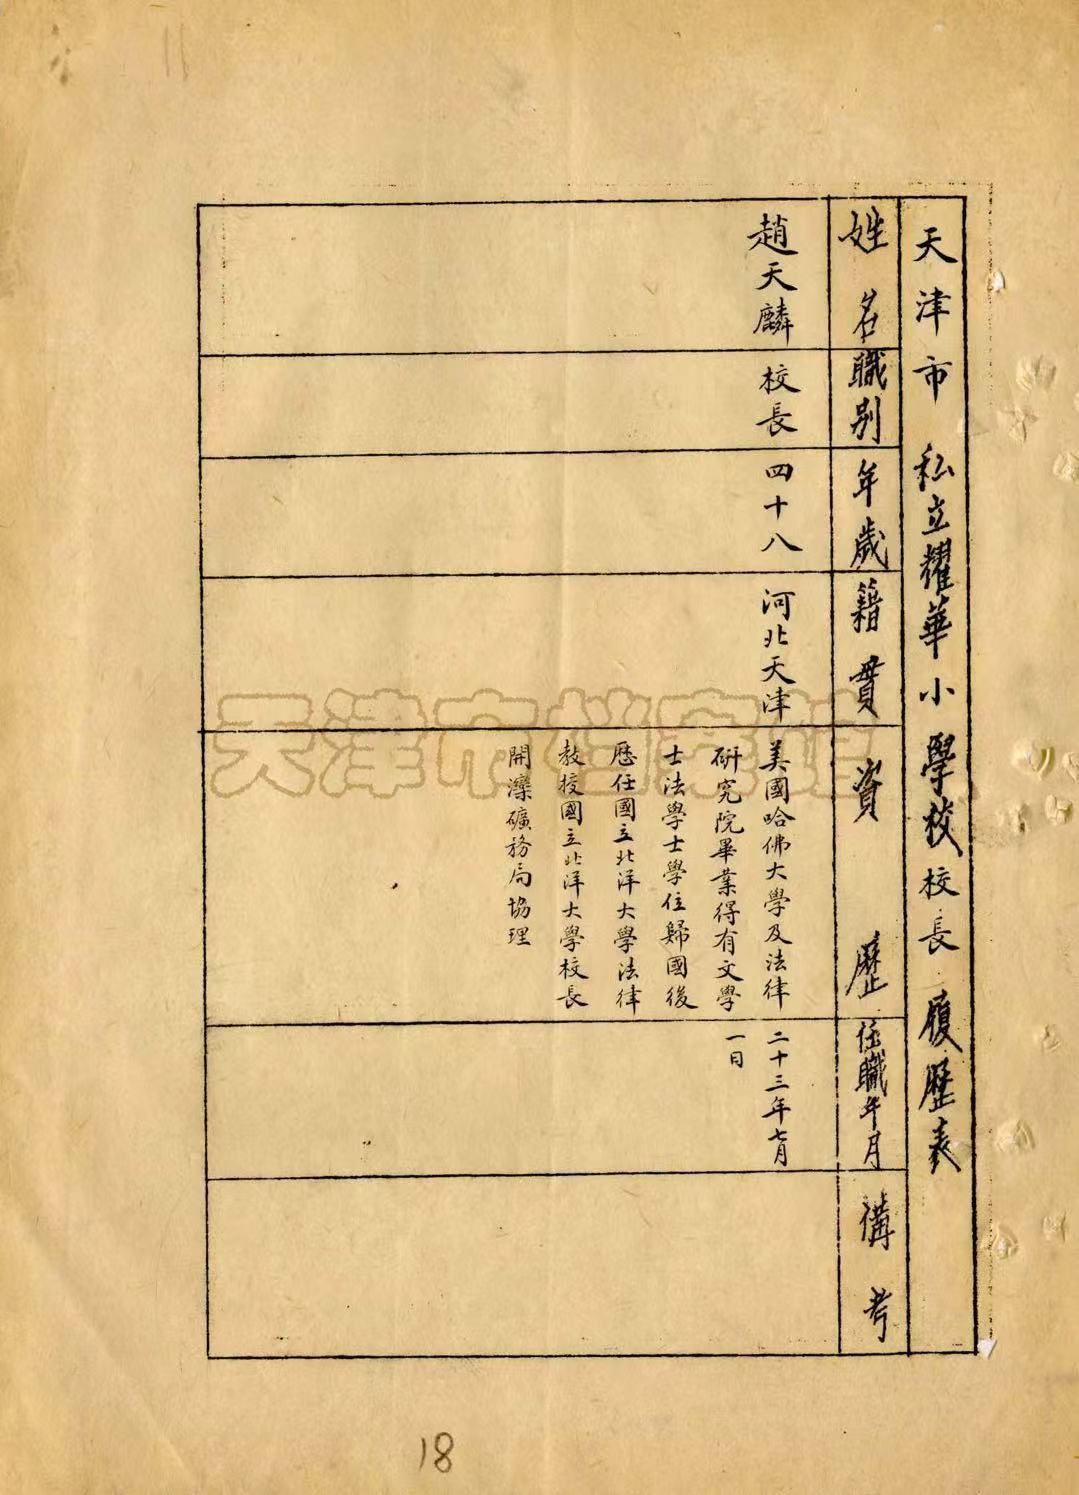 天津市 私立耀華小學校校長 履歷表
姓名
職別
年歲
籍貫
資歷
任職年月
備考
趙天麟
校長
四十八
河北天津
美國哈佛大學及法律
研究院畢業得有文學
士法學士學位歸國後
歷任國立北洋大學法律
教授國立北洋大學校長
開灤礦務局協理
二十三年七月
一日
天津市档案馆
18
11